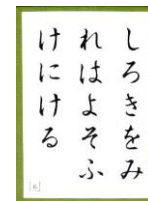 しろきをみ
れはよそふ
けにける